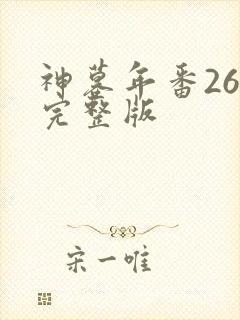 神墓年番26
完整版
宋一唯